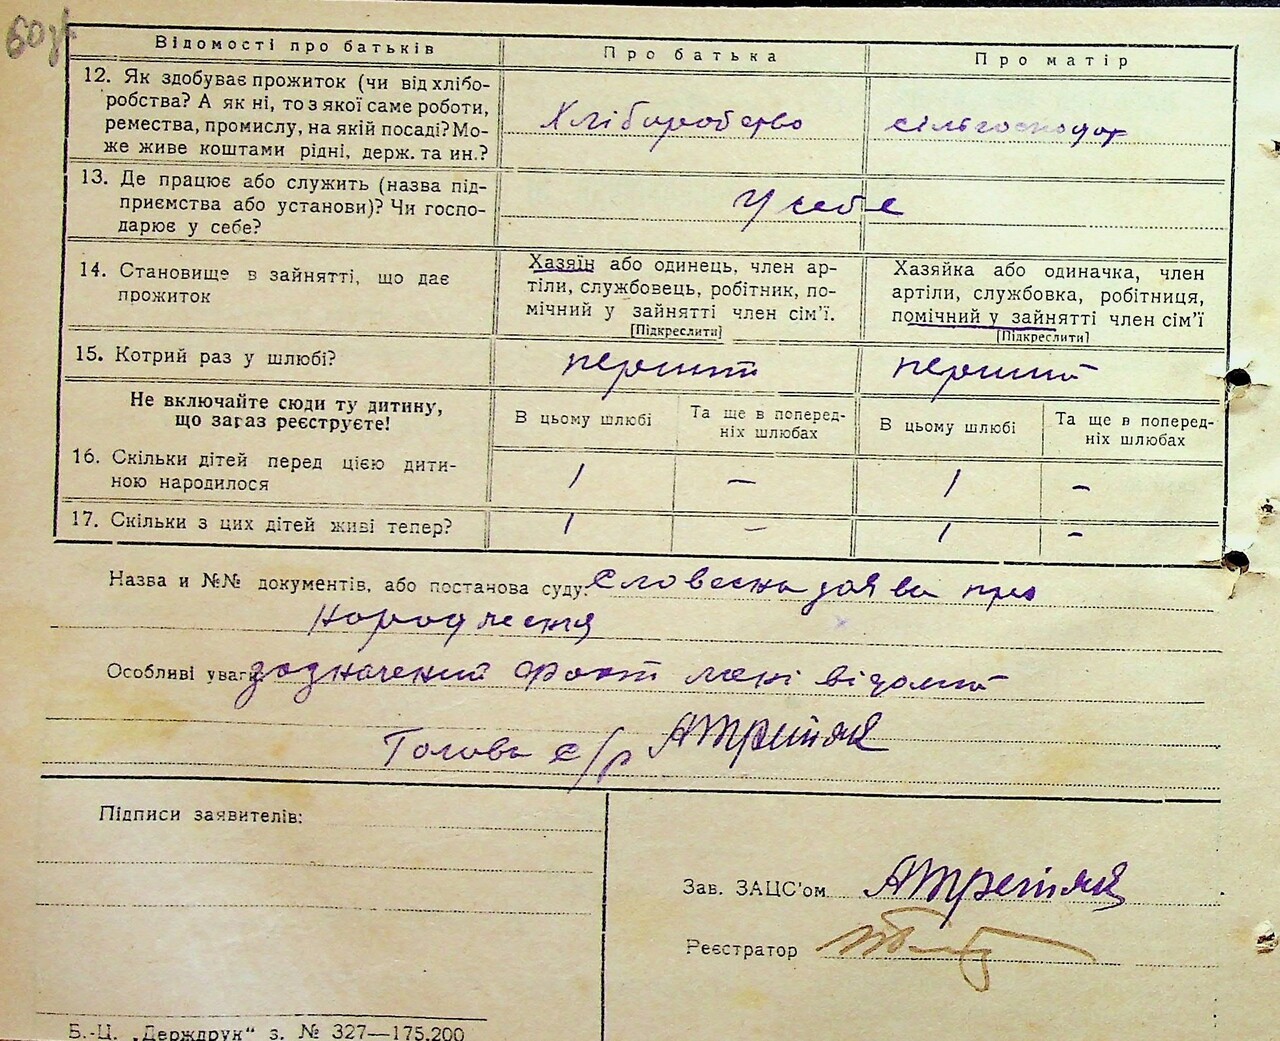 60
Відомості про батьків
Про батька
Про матір
12. Як здобуває прожиток (чи від хлібо-
робства? А як ні, то з якої саме роботи,
ремества, промислу, на якій посаді? Мо-
же живе коштами рідні, держ. та ин.?
Хліборобство
сільгосподар
13. Де працює або служить (назва під-
приємства або установи)? Чи госпо-
дарює у себе?
У себе
14. Становище в зайнятті, що дає
прожиток
Хазяїн або одинець, член ар-
тіли, службовець, робітник, по-
мічний у зайнятті член сім'ї.
[Підкреслити]
Хазяйка або одиначка, член
артіли, службовка, робітниця,
помічний у зайнятті член сім'ї
[Підкреслити]
15. Котрий раз у шлюбі?
перший
перший
Не включайте сюди ту дитину,
що зараз реєструєте!
В цьому шлюбі
Та ще в поперед-
ніх шлюбах
В цьому шлюбі
Та ще в поперед-
ніх шлюбах
16. Скільки дітей перед цією дити-
ною народилося
1 — 1 —
17. Скільки з цих дітей живі тепер?
1 — 1 —
Назва и №№ документів, або постанова суду: Словесна заява про
народження
Особливі уваги зазначений факт мені відомий
Голова с/р
Підписи заявителів:
Зав. ЗАЦС'ом
Реєстратор
Б.-Ц. „Держдрук" з. № 327—175.200